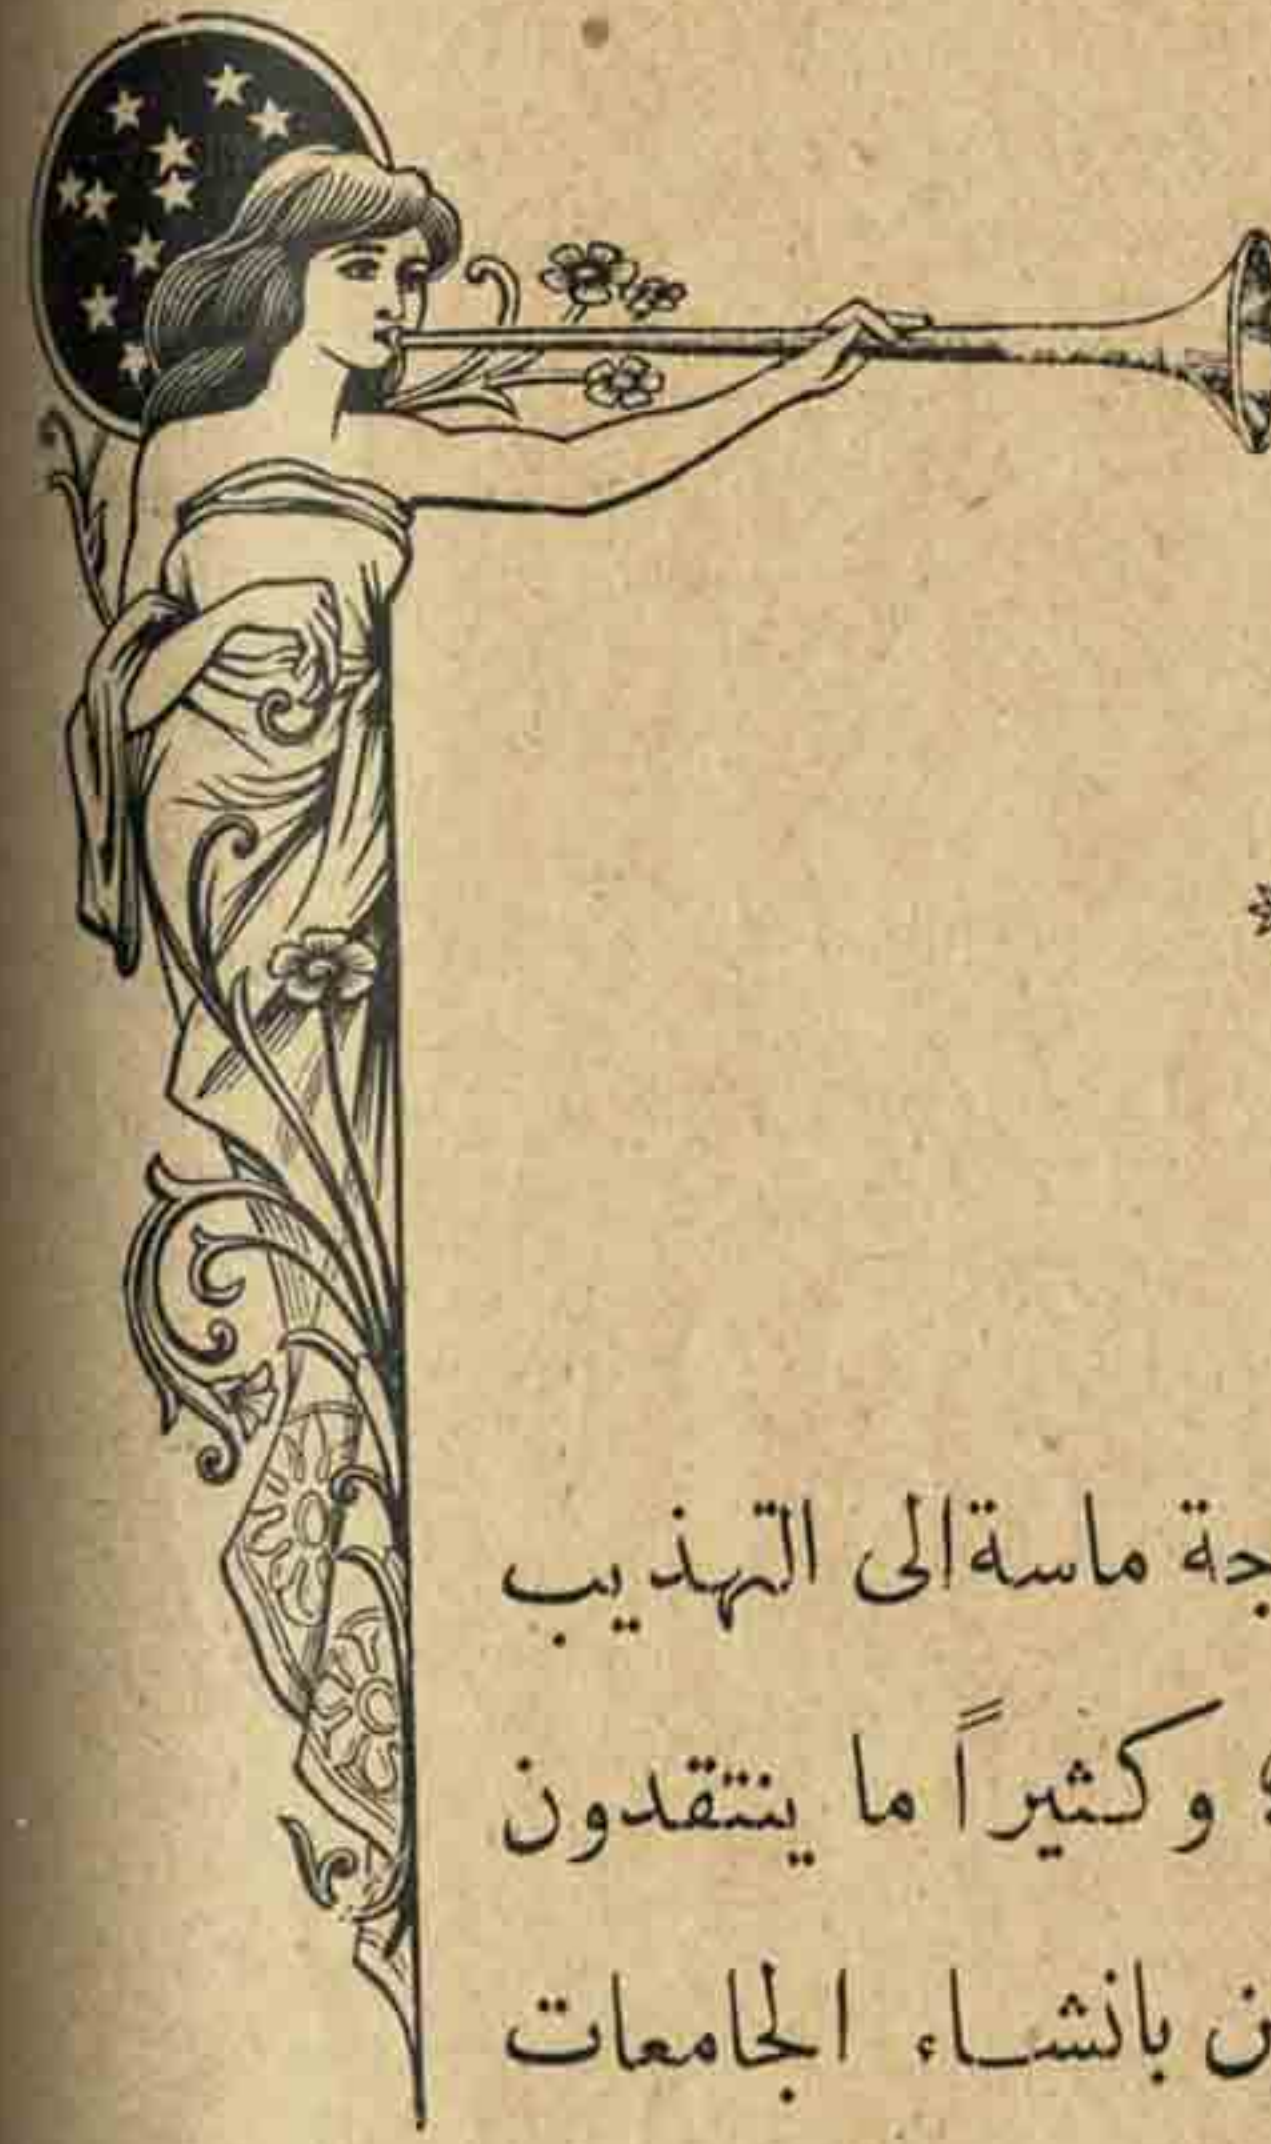 ماسة الى التهذيب
وكثيراً ما ينتقدون
بانشاء الجامعات